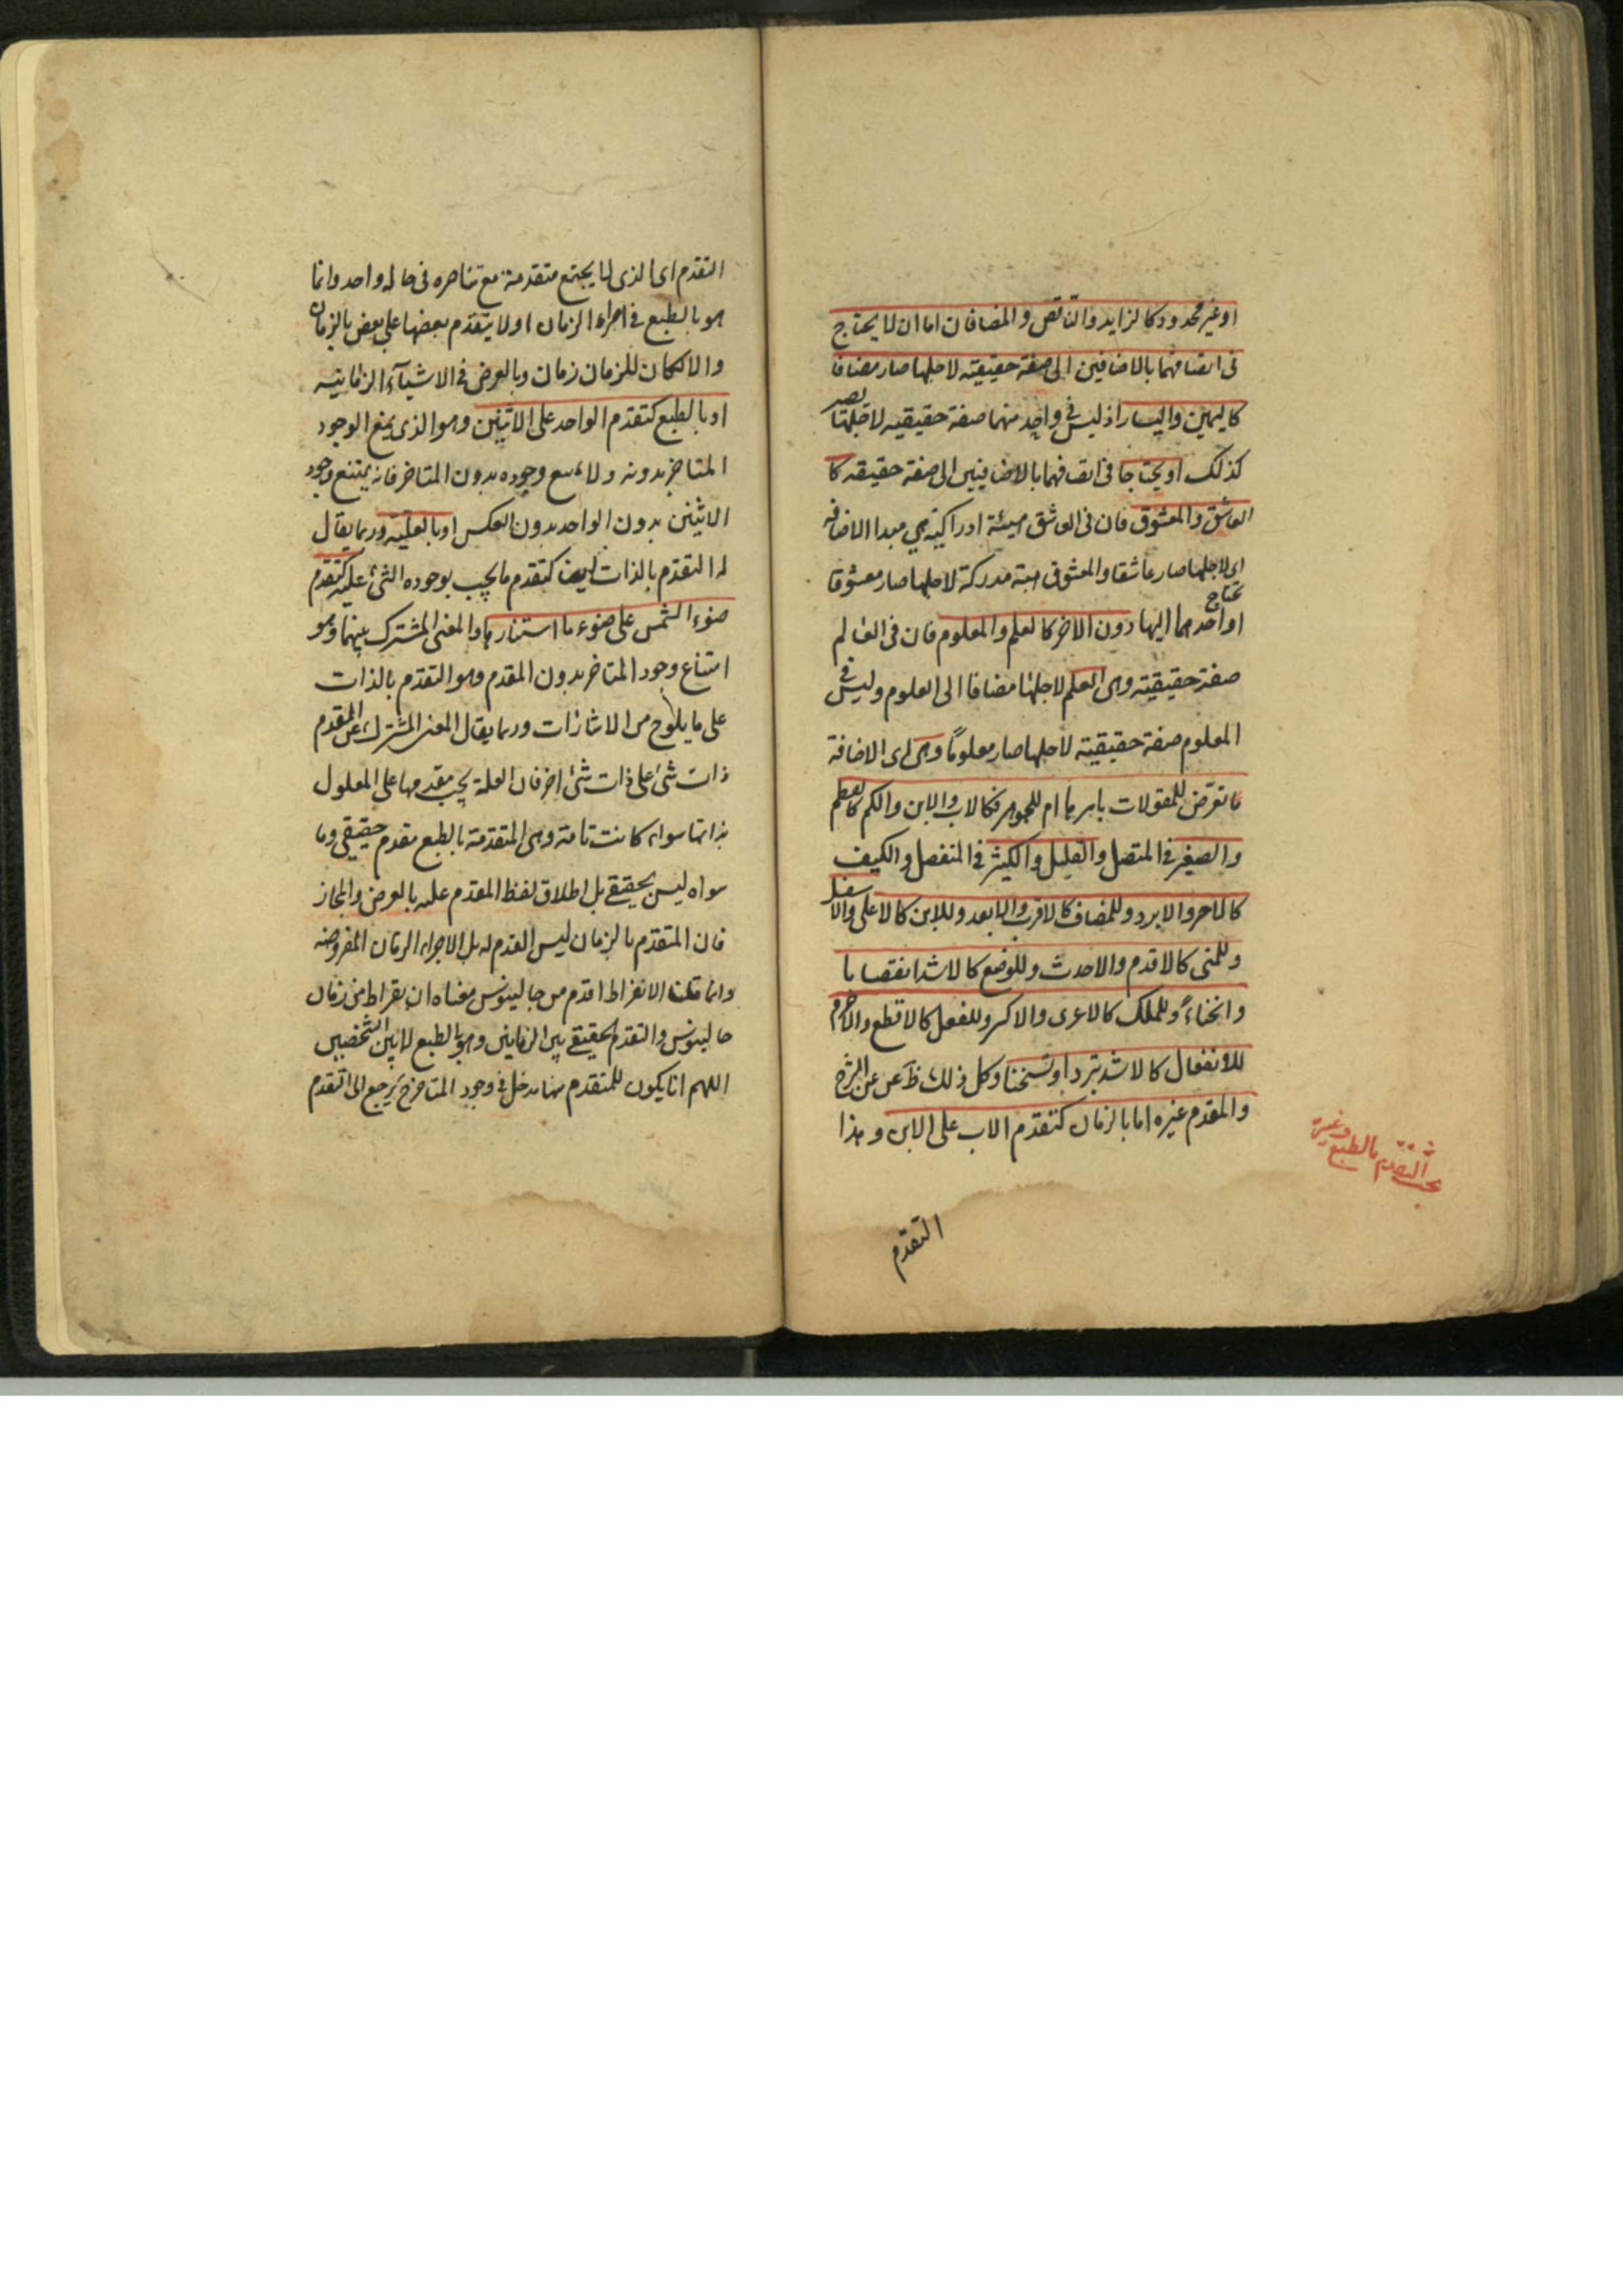 او غير محدود كالزايد والناقص والمضافان اما ان لا يحتاج
فى اتصافهما بالاضافتين الى صفة حقيقية لاجلها صار مضافا
كاليمين واليسار اذ ليس فى واحد منهما صفة حقيقية لاجلها يصير
كذلك او يحتاجا فى اتصافهما بالاضافيين الى صفة حقيقة كا
العاشق والمعشوق فان فى العاشق هيئة ادراكية هي مبدا الاضافة
اى لاجلها صار عاشقا والمعشوق هيئة مدركة لاجلها صار معشوقا
او احدهما يحتاج اليها دون الاخر كالعلم والمعلوم فان فى العالم
صفة حقيقية وهى العلم لاجلها مضافا الى العلوم وليس فى
المعلوم صفة حقيقية لاجلها صار معلوما وهى اى الاضافة
ما تعرض للمقولات باسرها ام للجوهر فكالاب والابن والكم كالعظم
والصغر فى المتصل والقليل والكثير فى المنفصل والكيف
كالاحر والابرد وللمضاف كالاقرب والابعد وللاين كالاعلى والاسفل
وللمتى كالاقدم والاحدث وللوضع كالاشد انتصابا
وانحناء وللملك كالاعرى والاكسى وللفعل كالاقطع والاصرم
للانفعال كالاشد تبردا وتسخنا وكل ذلك ظ عن الشرح
والمقدم غيره اما بالزمان كتقدم الاب على الابن وهذا
التقدم
التقدم بالطبع وغيره
التقدم اى الذى لا يجتمع متقدمة مع متاخره فى حالة واحد وانما
هو بالطبع فى اجزاء الزمان اولا يتقدم بعضها على بعض بالزمان
والا لكان للزمان زمان وبالعرض فى الاشياء الزمانية
او بالطبع كتقدم الواحد على الاثنين وهو الذى يمنع الوجود
المتاخر بدونه ولا يمنع وجوده بدون المتاخر فانه يمتنع وجود
الاثنين بدون الواحد بدون العكس او بالعلية وربما يقال
له التقدم بالذات ايضا كتقدم ما يجب بوجوده الشئ عليه كتقدم
ضوء الشمس على ضوء ما استنار بها والمعنى المشترك بينهما وهو
امتناع وجود المتاخر بدون المقدم وهو التقدم بالذات
على ما يلوح من الاشارات وربما يقال المعنى المشترك عن المقدم
ذات شئ على ذات شئ اخر فان العلة يجب تقدمها على المعلول
بذاتها سواء كانت تامة وهى المتقدمة بالطبع تقدم حقيقى وما
سواه ليس بحقيقى بل اطلاق لفظ المقدم عليه بالعرض والمجاز
فان المتقدم بالزمان ليس التقدم له بل لاجزاء الزمان المفروضه
وانما قلنا الابقراط اقدم من جالينوس معناه ان بقراط من زمان
جالينوس والتقدم الحقيقى بين الزمانين وهو بالطبع لا بين الشخصين
اللهم اذا يكون للمتقدم منها مدخل فى وجود المتاخر ح يرجع الى التقدم